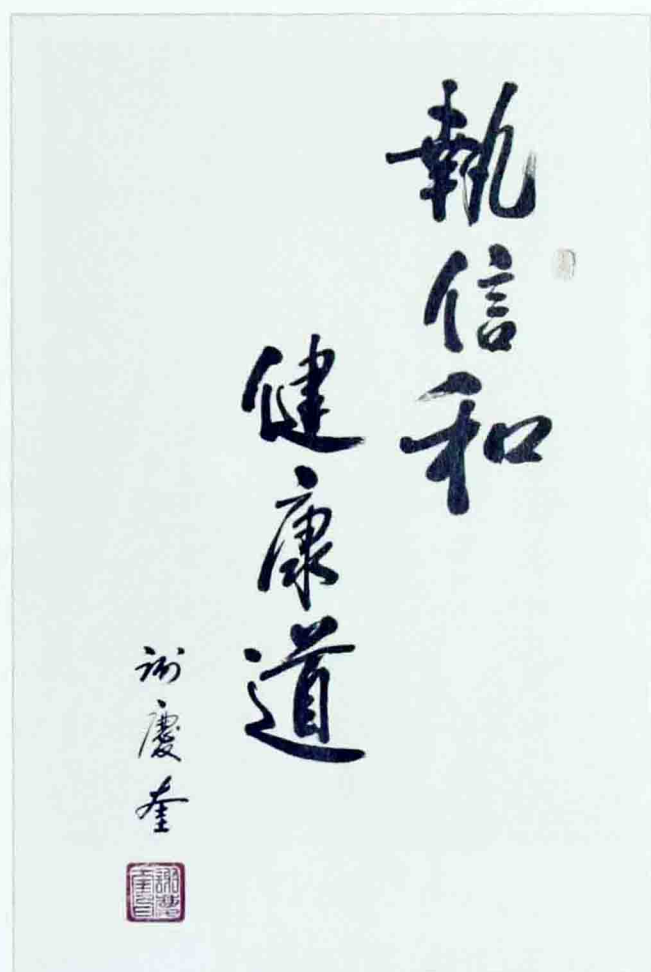 執信和
健康道
謝慶奎